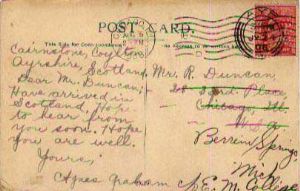 POST CARD.
This Side for Correspondence
Cairnstone, Coylton,
Ayrshire, Scotland.
Dear Mr. Duncan;
Have arrived in
Scotland. Hope
to hear from
you soon. Hope
you are well.
Yours,
Agnes Graham
Mr. R. Duncan,
Place,
Chicago, Ill.
U.S.A.
Berrien Springs
Mich
E. M. College